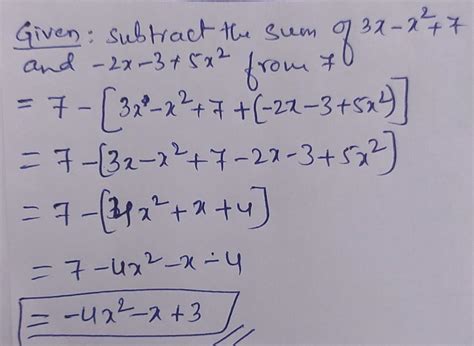 Given: subtract the sum of 3x-x²+7
and -2x-3+5x² from 7
= 7-[3x-x²+7+(-2x-3+5x²)]
= 7-(3x-x²+7-2x-3+5x²)
= 7-(4x²+x+4)
= 7-4x²-x-4
= -4x²-x+3